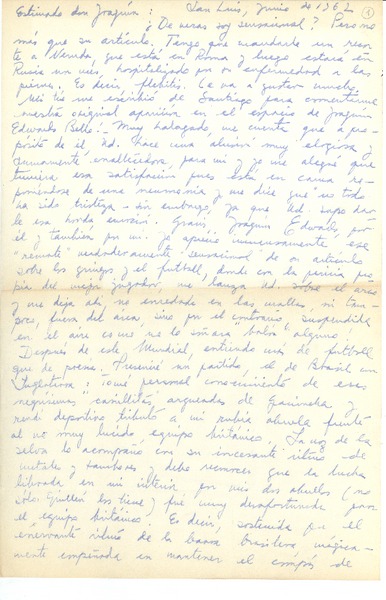 Estimado don Joaquín: San Luis, Junio de 1962 1
¿De veras soy sensacional? Pero no
más que su artículo. Tengo que mandarle un recor
te a Neruda, que está en Roma y luego estará en
Rusia un mes, hospitalizado por su enfermedad a las
piernas. Es decir, flebitis. Le va a gustar mucho.
Mi tío me escribió de Santiago para comentarme
nuestra original aparición en el espacio de Joaquín
Edwards Bello. Muy halagado, me cuenta que a pro-
pósito de él, Ud. hace una alusión muy elogiosa y
sumamente enaltecedora, para mí y yo me alegré que
tuviera esa satisfacción pues está en cama repo-
niéndose de una neumonía y me dice que "no todo
ha sido tristeza" sin embargo, ya que Ud. supo dar-
le esa honda emoción. Gracias, Joaquín Edwards, por
él y también por mí. Yo aprecié inmensamente ese
"remate" verdaderamente "sensacional" de su artículo
sobre los gringos y el football, donde con la pericia pro
pia del mejor jugador, me lanza Ud. sobre el arco
y me deja ahí no enredada en las mallas ni tam-
poco, fuera del área sino por el contrario suspendida
en el aire como no lo soñara balón alguno.
Después de este Mundial, entiendo más de football
que de prensa. Presencié un partido, el de Brasil con
Inglaterra: tomé personal conocimiento de esos
negrísimos canillitas arqueadas de Garrincha y
rendí deportivo tributo a mi rubia abuela frente
al no muy lucido equipo británico. La voz de la
selva lo acompañó con su incesante ritmo de
metales y tambores y debo reconocer que la lucha
librada en mi interior por mis dos abuelos (no
sólo Guillén los tiene) fué muy desafortunada para
el equipo británico. Es decir, sostenida por el
enervante ritmo de la banda brasilera, mágica-
mente empeñada en mantener el compás de